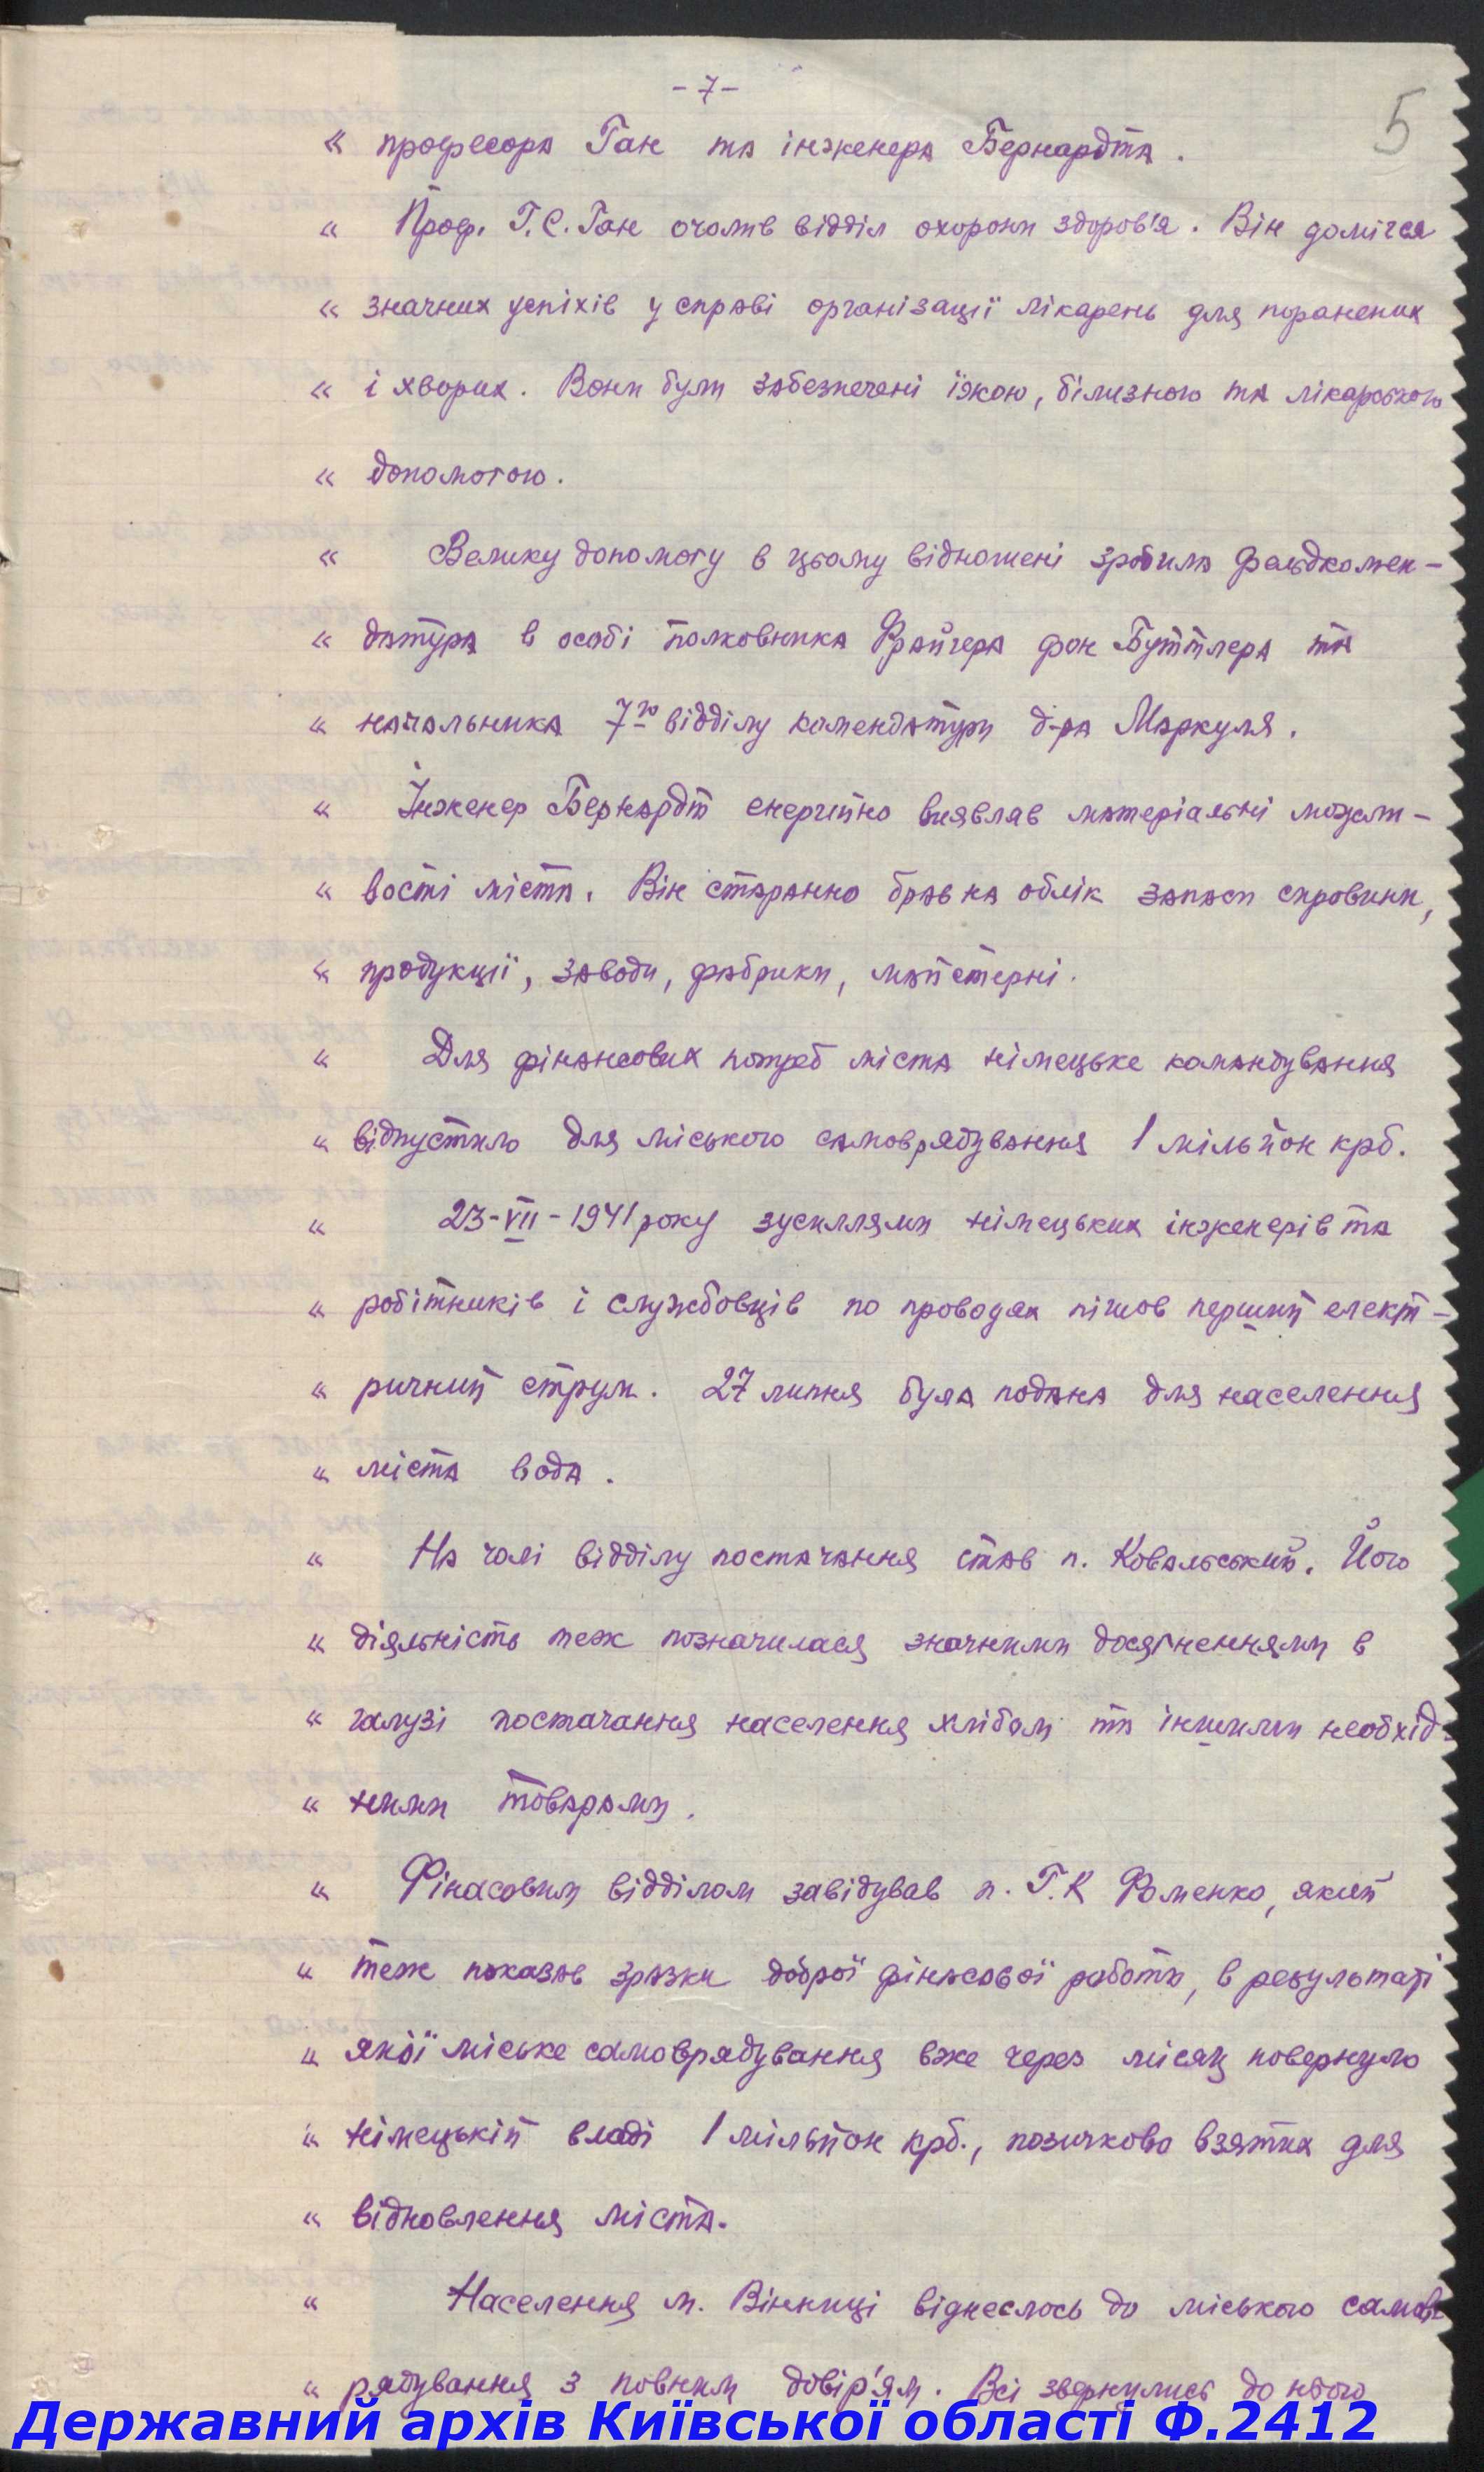 - 7 -
5
« професора Ган та інженера Бернардта.
« Проф. Г.С. Ган очолив відділ охорони здоров'я. Він домігся
« значних успіхів у справі організації лікарень для поранених
« і хворих. Вони були забезпечені їжою, білизною та лікарською
« допомогою.
« Велику допомогу в цьому відношені зробила фельдкомен-
« датура в особі полковника Фрайгера фон Буттлера та
« начальника 7го відділу комендатури д-ра Маркуля.
« Інженер Бернардт енергійно виявляв матеріальні можли-
« вості міста. Він старанно брав на облік запаси сировини,
« продукції, заводи, фабрики, майстерні.
« Для фінансових потреб міста німецьке командування
« відпустило для міського самоврядування 1 мільйон крб.
« 23-VII-1941 року зусиллями німецьких інженерів та
« робітників і службовців по проводах пішов перший елект-
« ричний струм. 27 липня була подана для населення
« міста вода.
« На чолі відділу постачання став п. Ковальський. Його
« діяльність теж позначилася значними досягненнями в
« галузі постачання населення хлібом та іншими необхід-
« ними товарами.
« Фінасовим відділом завідував п. Г.К Фоменко, який
« теж показав зразки доброї фінасової роботи, в результаті
« якої міське самоврядування вже через місяц повернуло
« німецькій владі 1 мільйон крб., позичково взятих для
« відновлення міста.
« Населення м. Вінниці віднеслось до міського самов
« рядування з повним довір'ям. Всі звернулись до нього
Державний архів Київської області Ф.2412